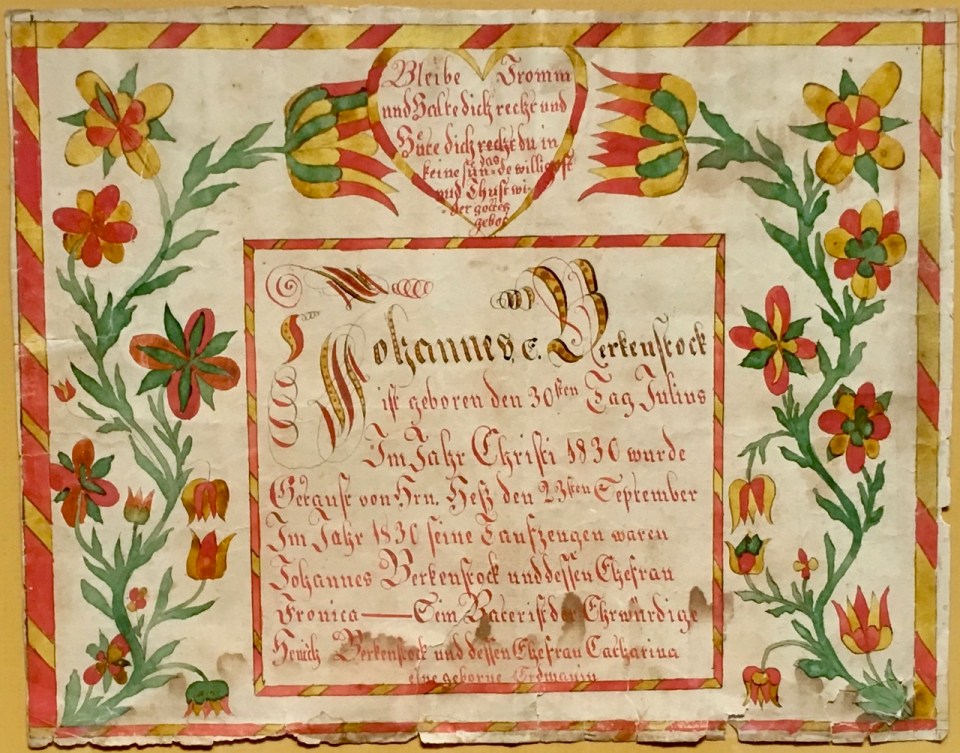 Bleibe Fromm
und Halte dich recht und
Hüte dich recht du in
keine sünde willigst
das
und Thust wi-
der gottes
gebot
Johannes c. Berkenstock
ist geboren den 30sten Tag Julius
Im Jahr Christi 1830 wurde
Getauft von Hrn. Heß den 23sten September
Im Jahr 1830 seine Taufzeugen waren
Johannes Berkenstock und dessen Ehefrau
Fronica — Sein Vater ist der Ehrwürdige
Berkenstock und dessen Ehefrau Catharina
eine geborne